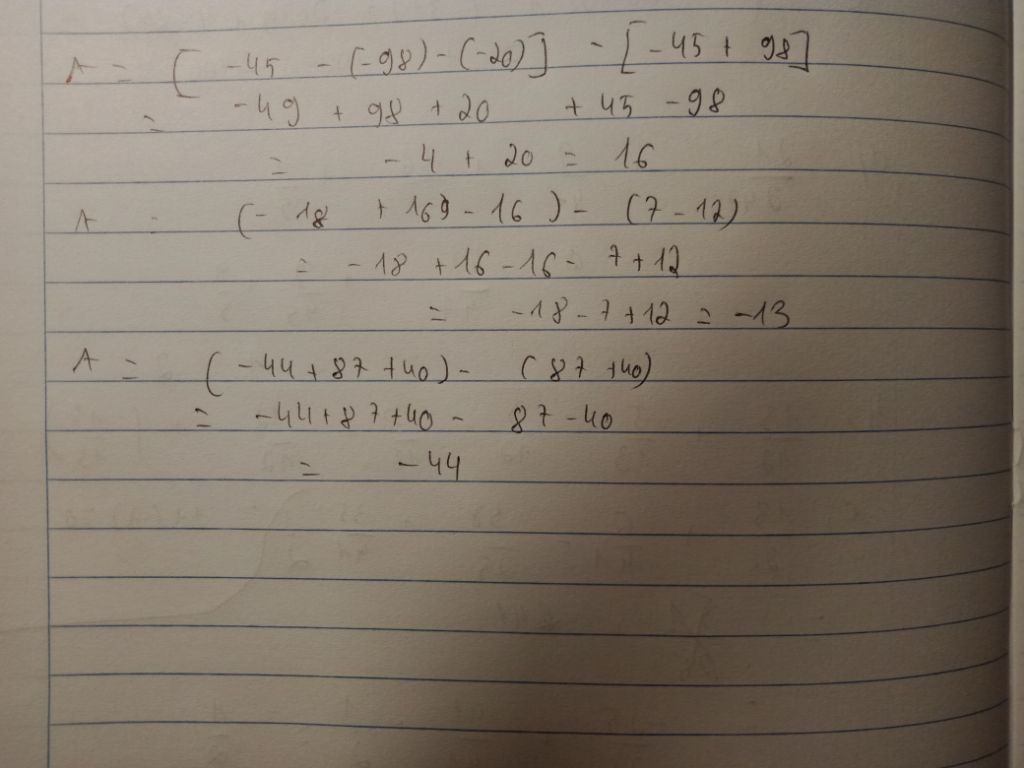 A = [ -45 - (-98) - (-20) ] - [ -45 + 98 ]
= -49 + 98 + 20 + 45 - 98
= - 4 + 20 = 16
A = (- 18 + 169 - 16 ) - (7 - 12)
= - 18 + 16 - 16 - 7 + 12
= -18 - 7 + 12 = -13
A = ( -44 + 87 + 40 ) - ( 87 + 40)
= -44 + 87 + 40 - 87 - 40
= - 44